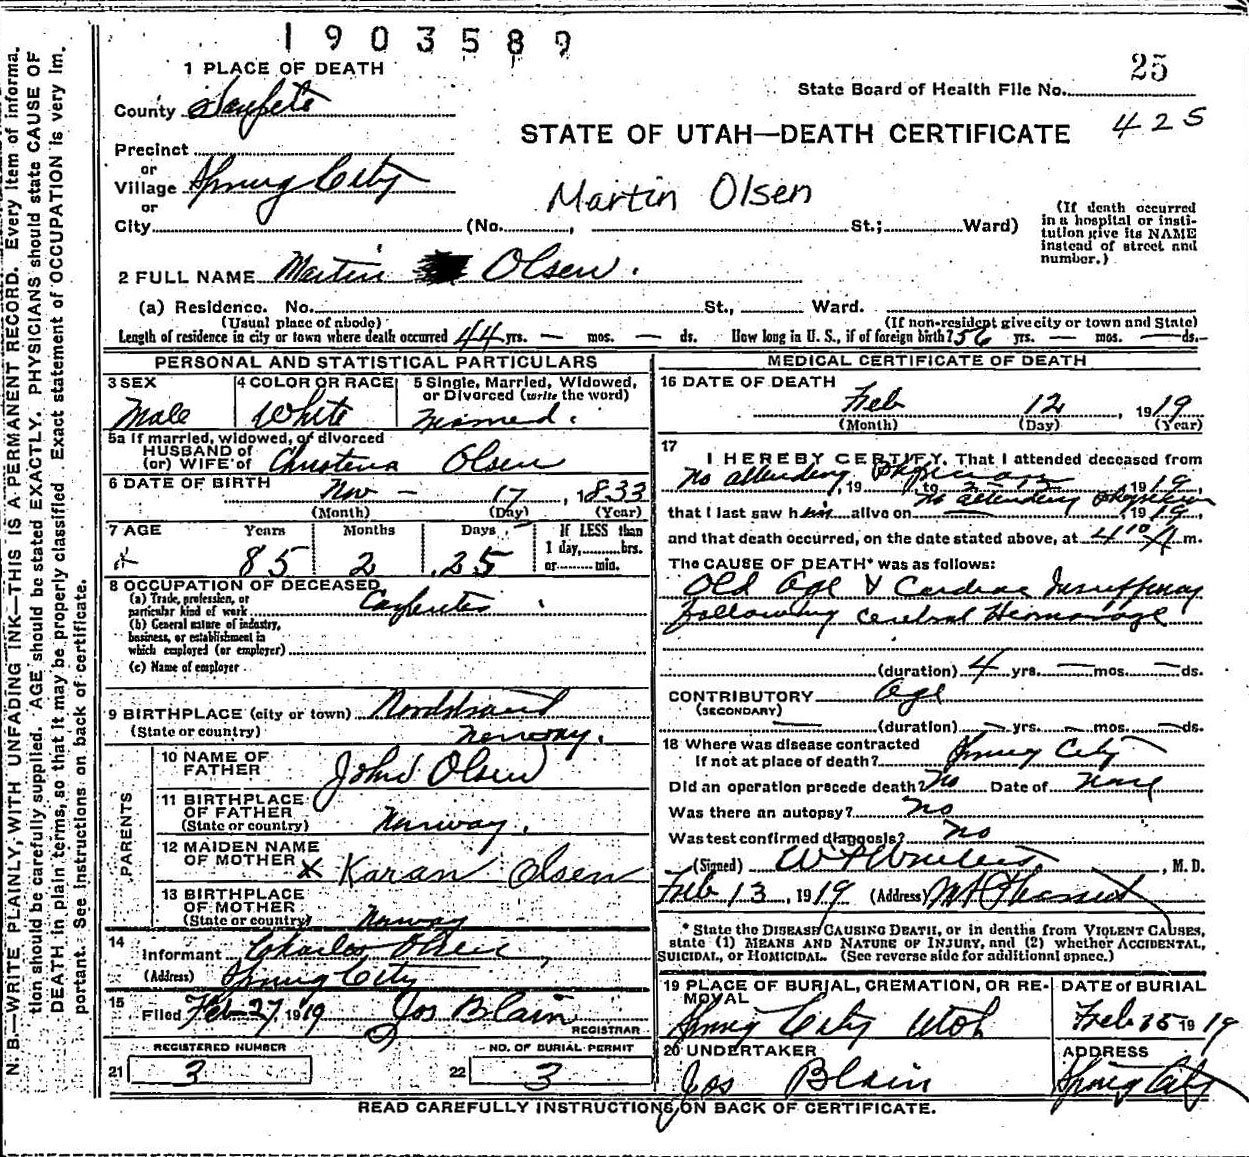 1903589
1 PLACE OF DEATH
25
County Sanpete
State Board of Health File No.
425
STATE OF UTAH—DEATH CERTIFICATE
Precinct
or
Village Spring City
Martin Olsen
or
City (No. , St.; Ward)
(If death occurred
in a hospital or insti-
tution give its NAME
instead of street and
number.)
2 FULL NAME Martin Olsen.
(a) Residence. No. St., Ward.
(Usual place of abode) (If non-resident give city or town and State)
Length of residence in city or town where death occurred 44 yrs. — mos. — ds. How long in U. S., if of foreign birth? 56 yrs. — mos. — ds.
PERSONAL AND STATISTICAL PARTICULARS
3 SEX
Male
4 COLOR OR RACE
White
5 Single, Married, Widowed,
or Divorced (write the word)
5a If married, widowed, or divorced
HUSBAND of
(or) WIFE of Christena Olsen
6 DATE OF BIRTH
Nov — 17, 1833
(Month) (Day) (Year)
7 AGE Years Months Days If LESS than
1 day, hrs.
or min.
85 2 25
8 OCCUPATION OF DECEASED
(a) Trade, profession, or
particular kind of work Carpenter
(b) General nature of industry,
business, or establishment in
which employed (or employer)
(c) Name of employer
9 BIRTHPLACE (city or town) Nordstrand
(State or country) Norway.
PARENTS
10 NAME OF
FATHER John Olsen
11 BIRTHPLACE
OF FATHER
(State or country) Norway.
12 MAIDEN NAME
OF MOTHER x Karan Olsen
13 BIRTHPLACE
OF MOTHER
(State or country) Norway
14
Informant Charles Olsen
(Address) Spring City
15
Filed Feb 27 1919 Jos Blain
REGISTRAR
REGISTERED NUMBER
21 3
NO. OF BURIAL PERMIT
22 3
MEDICAL CERTIFICATE OF DEATH
16 DATE OF DEATH
Feb 12, 1919
(Month) (Day) (Year)
17
I HEREBY CERTIFY, That I attended deceased from
No attending physician, 19 to 1919,
no attending physician
that I last saw him alive on 1919,
and that death occurred, on the date stated above, at 4 10 A m.
The CAUSE OF DEATH* was as follows:
Old age & Cardiac Insufficiency
following cerebral Hemorrhage
(duration) 4 yrs. — mos. — ds.
CONTRIBUTORY Age
(SECONDARY)
(duration) — yrs. — mos. — ds.
18 Where was disease contracted
If not at place of death? Spring City
Did an operation precede death? No Date of none
Was there an autopsy? no
Was test confirmed diagnosis? no
(Signed) , M. D.
Feb 13, 1919 (Address) Mt Pleasant
* State the DISEASE CAUSING DEATH, or in deaths from VIOLENT CAUSES,
state (1) MEANS AND NATURE OF INJURY, and (2) whether ACCIDENTAL,
SUICIDAL, or HOMICIDAL. (See reverse side for additional space.)
19 PLACE OF BURIAL, CREMATION, OR RE-
MOVAL
Spring City Utah
DATE of BURIAL
Feb 15 1919
20 UNDERTAKER
Jos Blain
ADDRESS
Spring City
READ CAREFULLY INSTRUCTIONS ON BACK OF CERTIFICATE.
N. B.—WRITE PLAINLY, WITH UNFADING INK—THIS IS A PERMANENT RECORD. Every item of informa-
tion should be carefully supplied. AGE should be stated EXACTLY. PHYSICIANS should state CAUSE OF
DEATH in plain terms, so that it may be properly classified. Exact statement of OCCUPATION is very im-
portant. See instructions on back of certificate.